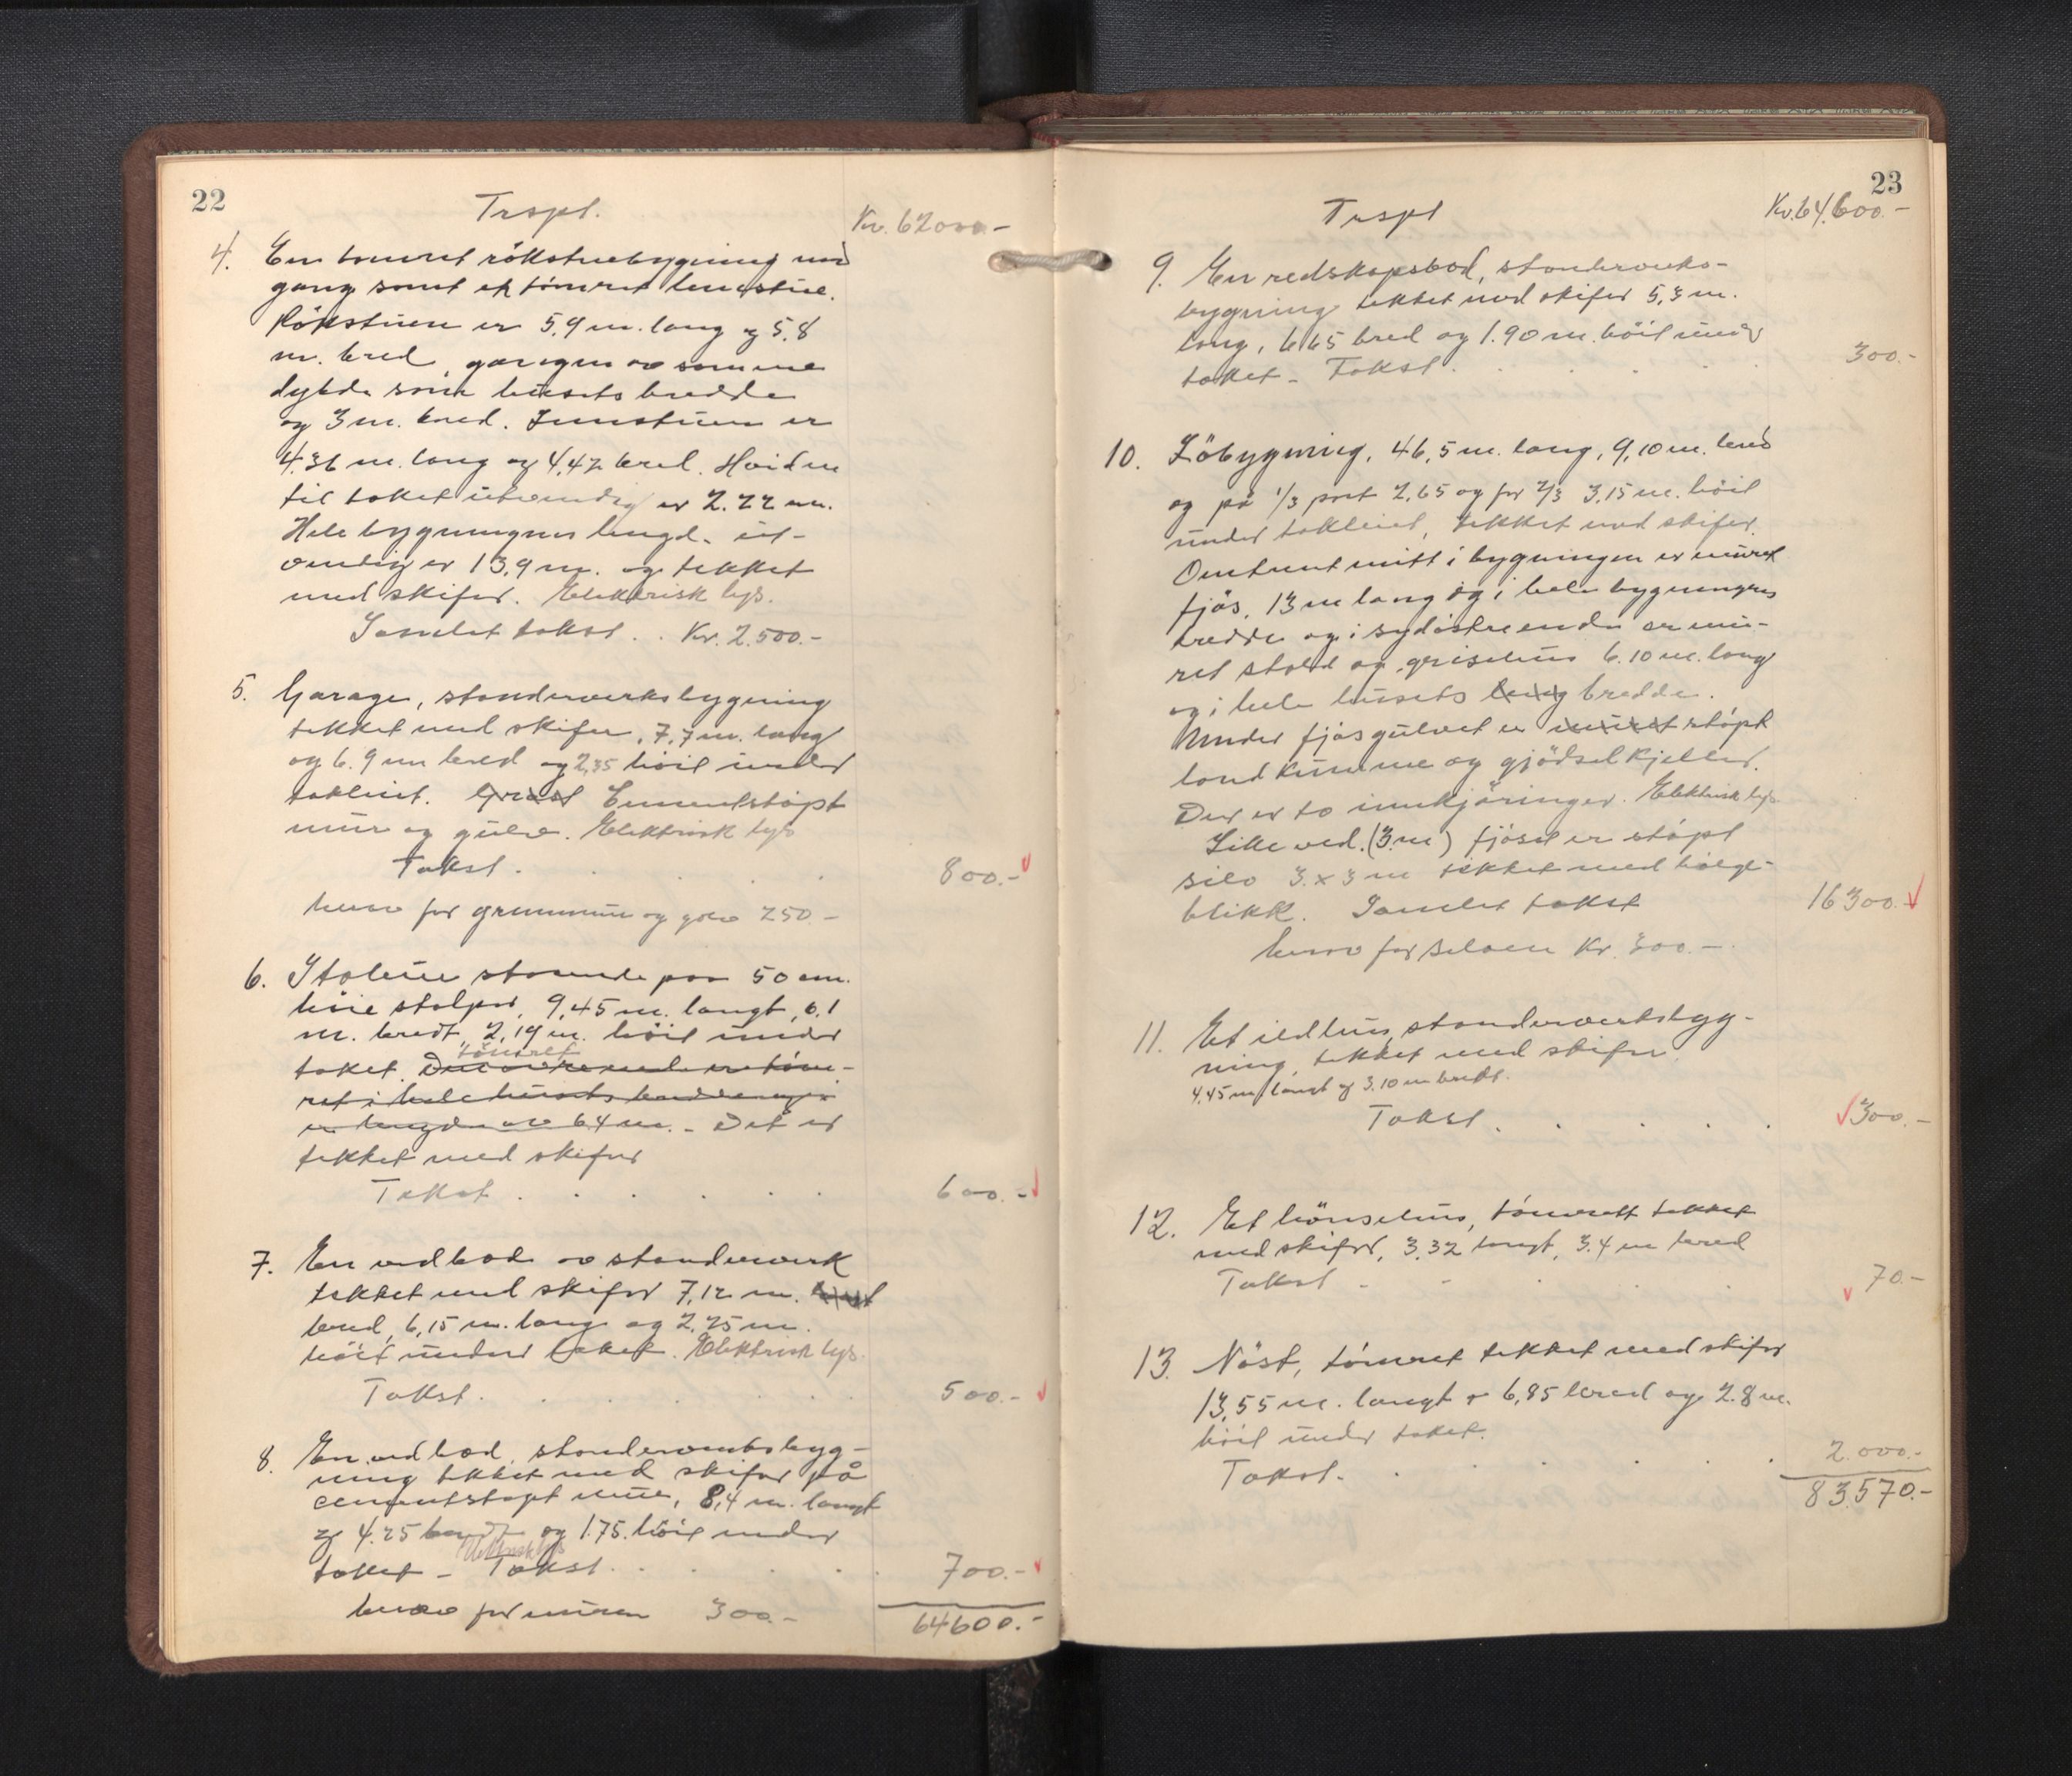 22
Trspl.
Kr. 62000.-
4. En tömret rökstuebygning med
gang samt et tömret
Rökstuen er 5,9 m. lang og 5,8
m. bred, gangen av samme
dybde som husets bredde
og 3 m. bred. Innstuen er
4,36 m. lang og 4,42 bred. Höiden
til taket utvendig er 2.22 m.
Hele bygningens lengde ut-
vendig er 13,9 m. og tekket
med skifer. Elektrisk lys.
Samlet takst. . Kr. 2.500.-
5. Garage, standerverksbygning
tekket med skifer, 7,7 m. lang
og 6.9 m bred og 2,35 höit under
takleiet. Cementstöpt
mur og gulv. Elektrisk lys
Takst. 800.-
herav for grunnmur og golv 250-
6. Stabur staaende paa 50 cm.
höie stolper, 9,45 m. langt, 6.1
m. bredt, 2,19 m. höit under
tömret
taket. Den övre ende er töm-
ret i hele husets bredde og i
en lengde av 6.4 m. - Det er
tekket med skifer
Takst . . . . . . 600.-
7. En vedbod av standerverk
tekket med skifer 7,12 m.
bred, 6,15 m. lang og 2,25 m.
höit under taket. Elektrisk lys.
Takst. . . . . . 500.-
8. En vedbod, standerverksbyg-
ning tekket med skifer på
cementstöpt mur, 8,4 m. langt
og 4.25 bredt og 1.75. höit under
Elektrisk lys
taket - Takst. . . . . 700.-
herav for muren 300.-
64600.-
23
Trspl
Kr. 64.600.-
9. En redskapsbod, standerverks-
bygning tekket med skifer 5,3 m.
lang, 6.65 bred og 1.90 m. höit under
taket - Takst. . . . . . 300.-
10. Löbygning, 46,5 m. lang, 9,10 m. bred
og på 1/3 part 2,65 og for 2/3 3,15 m. höit
under takleiet, tekket med skifer.
Omtrent mitt i bygningen er muret
fjös, 13 m lang og i hele bygningens
bredde og i sydöstre ende er mu-
ret stald og grisehus 6.10 m. lang
og i hele husets leng bredde.
Under fjösgulvet er muret stöpt
landkumme og gjödselkjeller.
Der er to innkjöringer. Elektrisk lys.
Like ved (3 m) fjöset er stöpt
silo 3 x 3 m tekket med bölge-
blikk. Samlet takst 16300.-
herav for siloen Kr. 300.-
11. Et ildhus, standerverksbyg-
ning, tekket med skifer.
4,45 m langt og 3.10 m bredt.
Takst. . . . . . 300.-
12. Et hönsehus, tömrett tekket
med skifer, 3.32 langt, 3.4 m bred
Takst - 70.-
13. Nöst, tömret tekket med skifer
13,55 m. langt + 6,85 bred og 2.8 m.
höit under taket.
Takst. . . . . . 2.000.-
83570.-